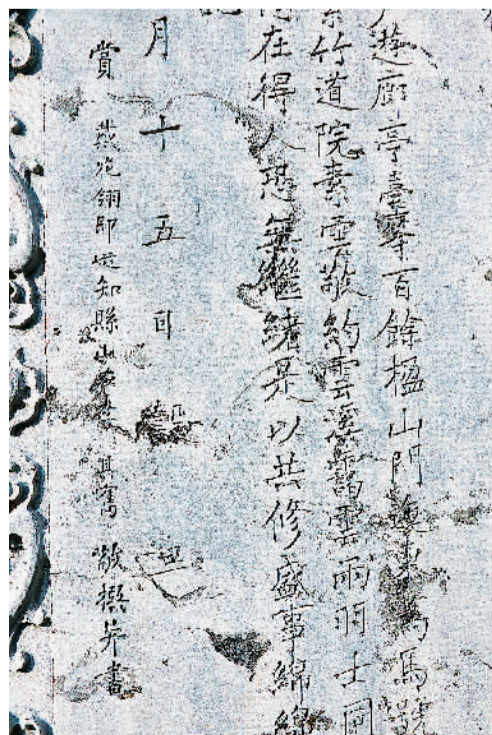 遊廊亭臺百餘楹山門馬號
竹道院素雲敬約雲溪雲雨羽士同
在得人恐無繼緒是以共修盛事綿綿
月十五日
賞戴花翎即選知縣山其敬撰并書